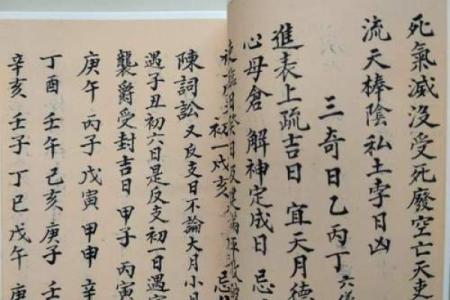 死氣滅没受死廢空亡天吏
流天棒陰私土孛日凶
三奇日乙丙丁六
進表上疏吉日 宜天月德
心母倉 解神定成日 忌
初一戌亥 忌
陳詞訟 又反支日不論大月小
遇子丑初六日是反支初一日遇
襲爵受封吉日 甲子 丙寅
庚午 丙子 戊寅 甲申 辛
丁酉 壬午 己亥 庚子 壬
辛亥 壬子 丁巳 戊午